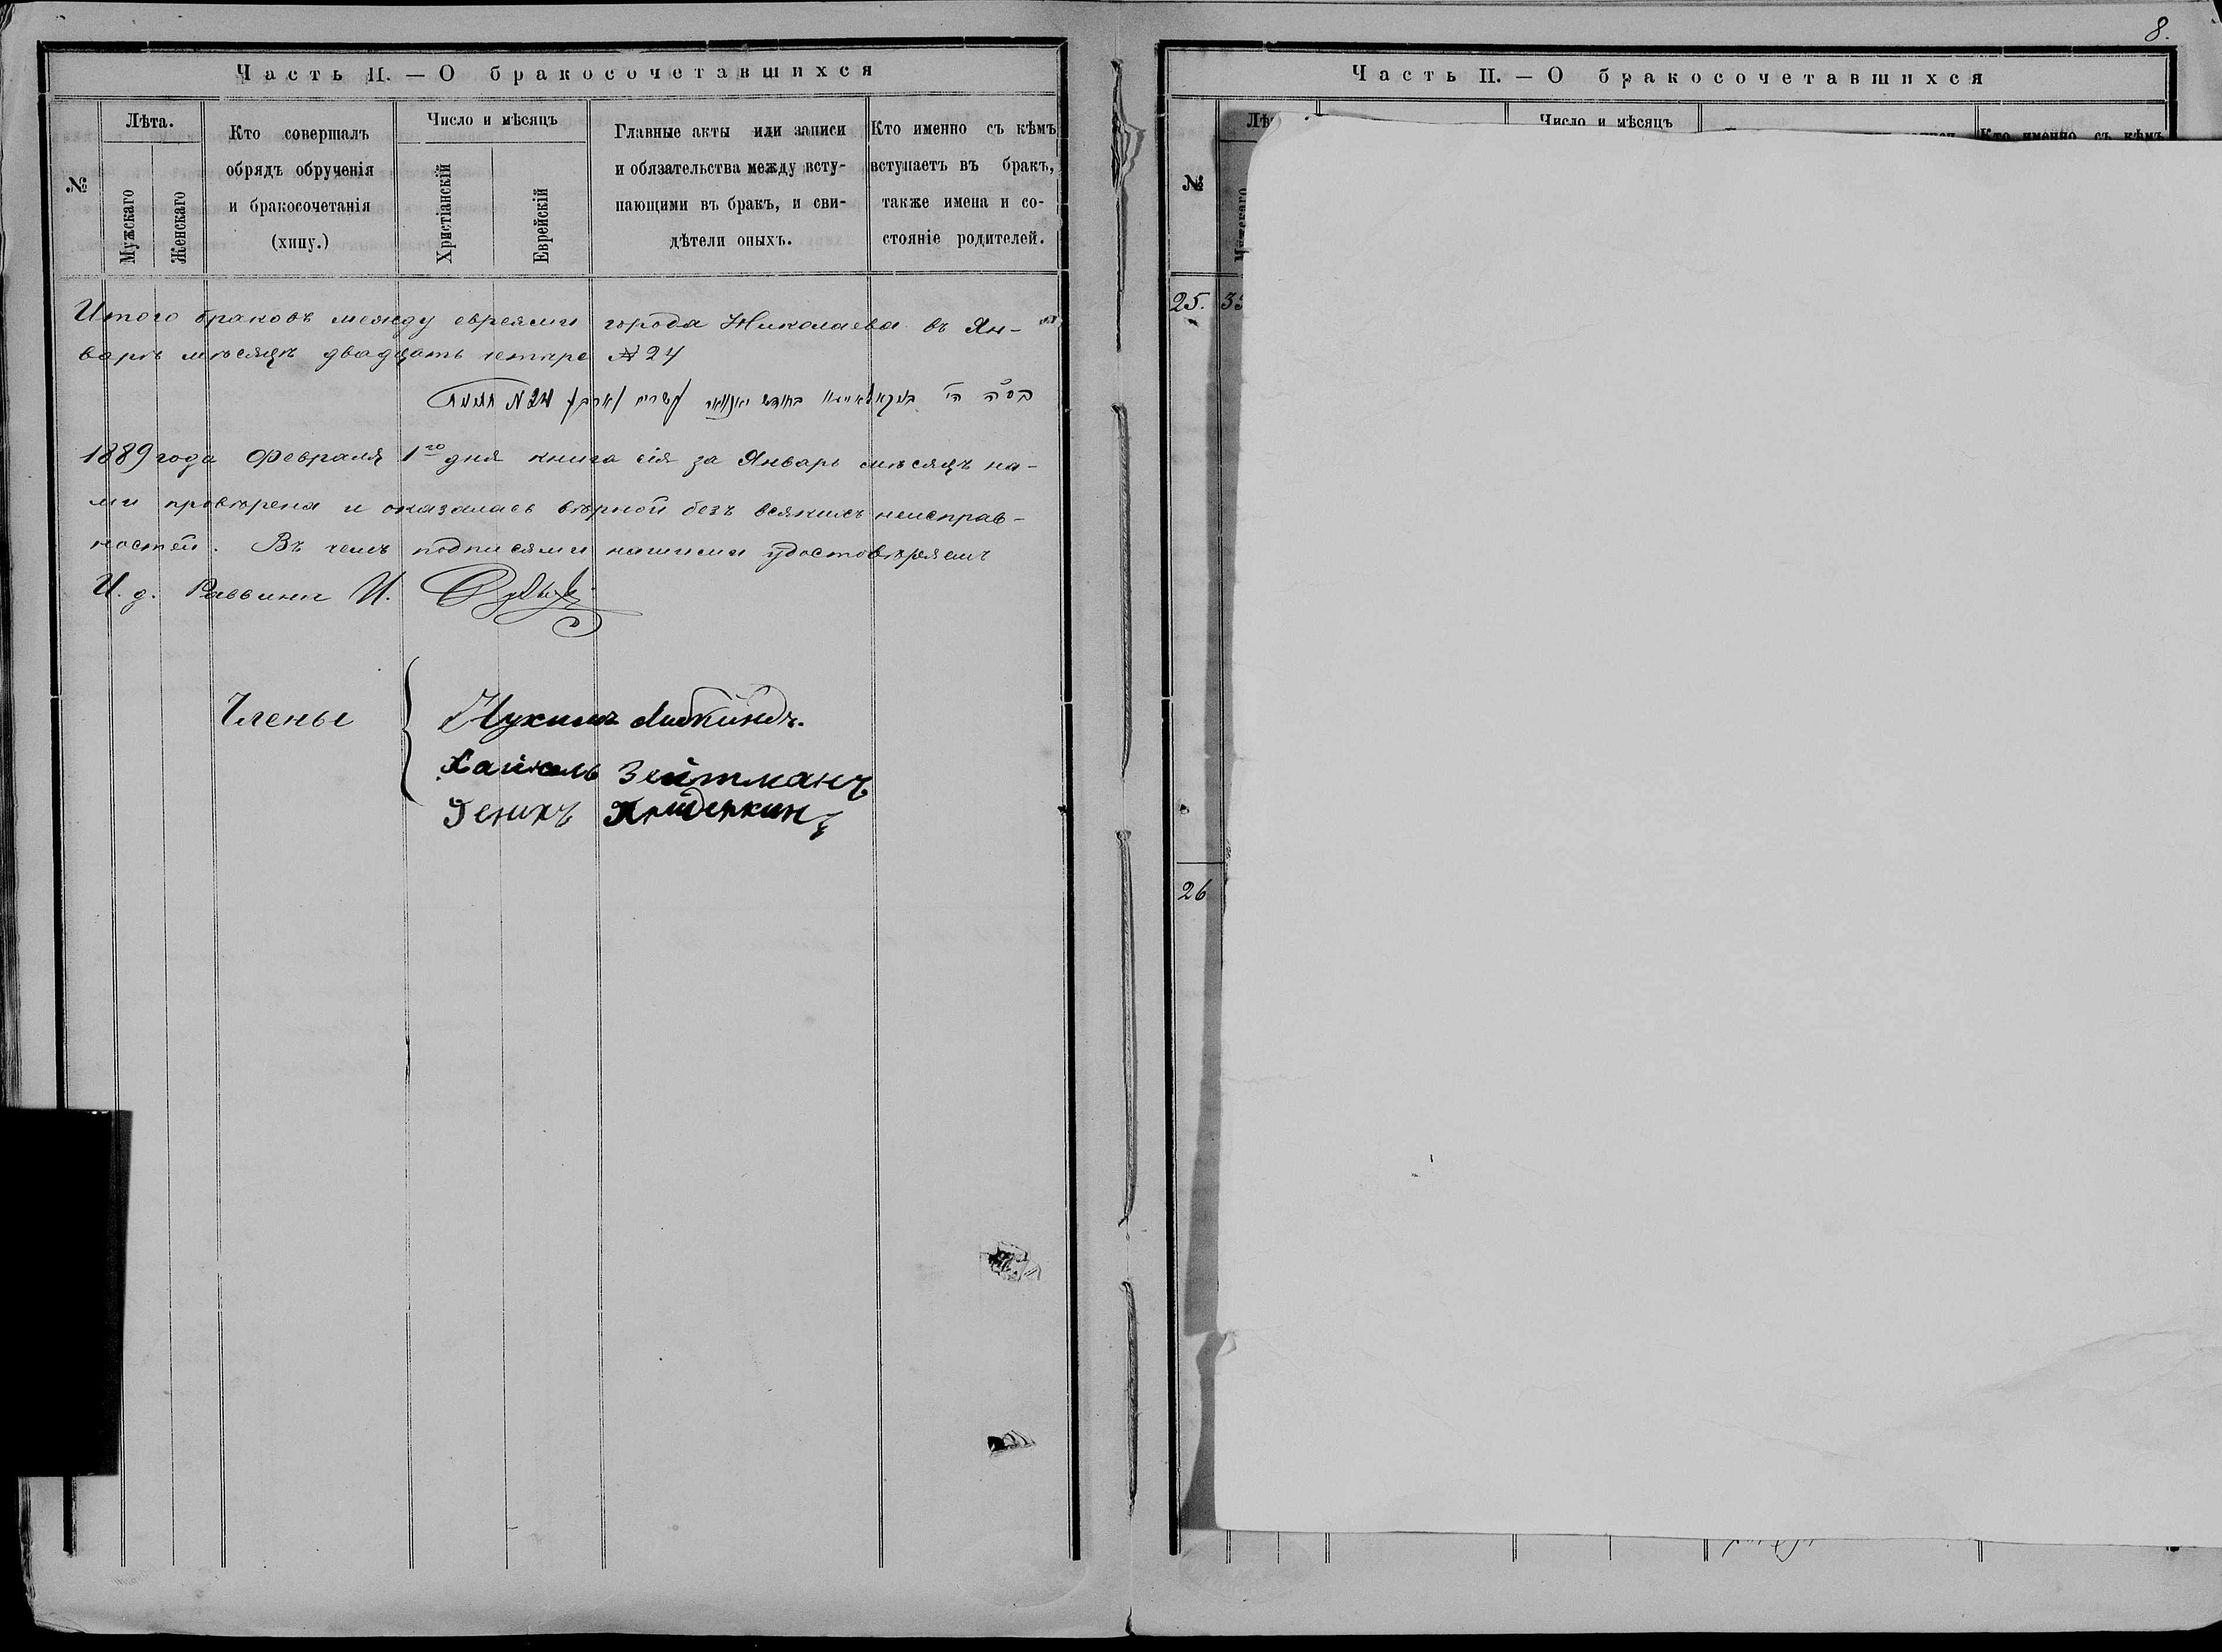 Часть II. — О бракосочетавшихся
№
Лѣта.
Мужскаго
Женскаго
Кто совершалъ
обрядъ обрученія
и бракосочетанія
(хипу.)
Число и мѣсяцъ
Христіанскій
Еврейскій
Главные акты или записи
и обязательства между всту-
пающими въ бракъ, и сви-
дѣтели оныхъ.
Кто именно съ кѣмъ
вступаетъ въ бракъ,
также имена и со-
стояніе родителей.
Итого браковъ между евреями города Николаева въ Ян-
варѣ мѣсяцѣ двадцать четыре № 24
N 24
1889 года Февраля 1го дня книга сія за Январь мѣсяцъ на-
ми провѣрена и оказалась вѣрной безъ всякихъ неисправ-
ностей. Въ чемъ подписями нашими удостовѣряемъ
И. д. Раввина И.
Члены
Нухимъ Либкиндъ.
Зейтманъ
Генихъ
8.
Часть II. — О бракосочетавшихся
№
Число и мѣсяцъ
Кто именно съ кѣмъ
25.
26